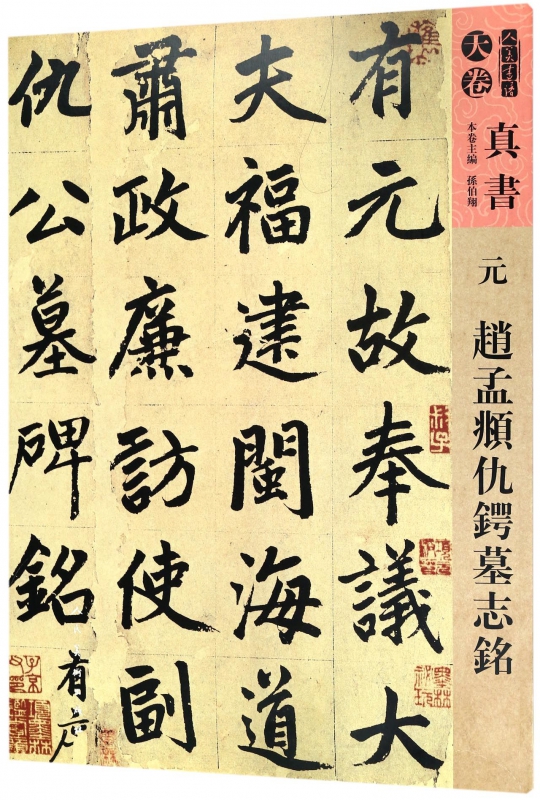 人美書譜
天卷
真書
本卷主編 孫伯翔
元 趙孟頫仇鍔墓志銘
有元故奉議大
夫福建閩海道
肅政廉訪使副
仇公墓碑銘
有序